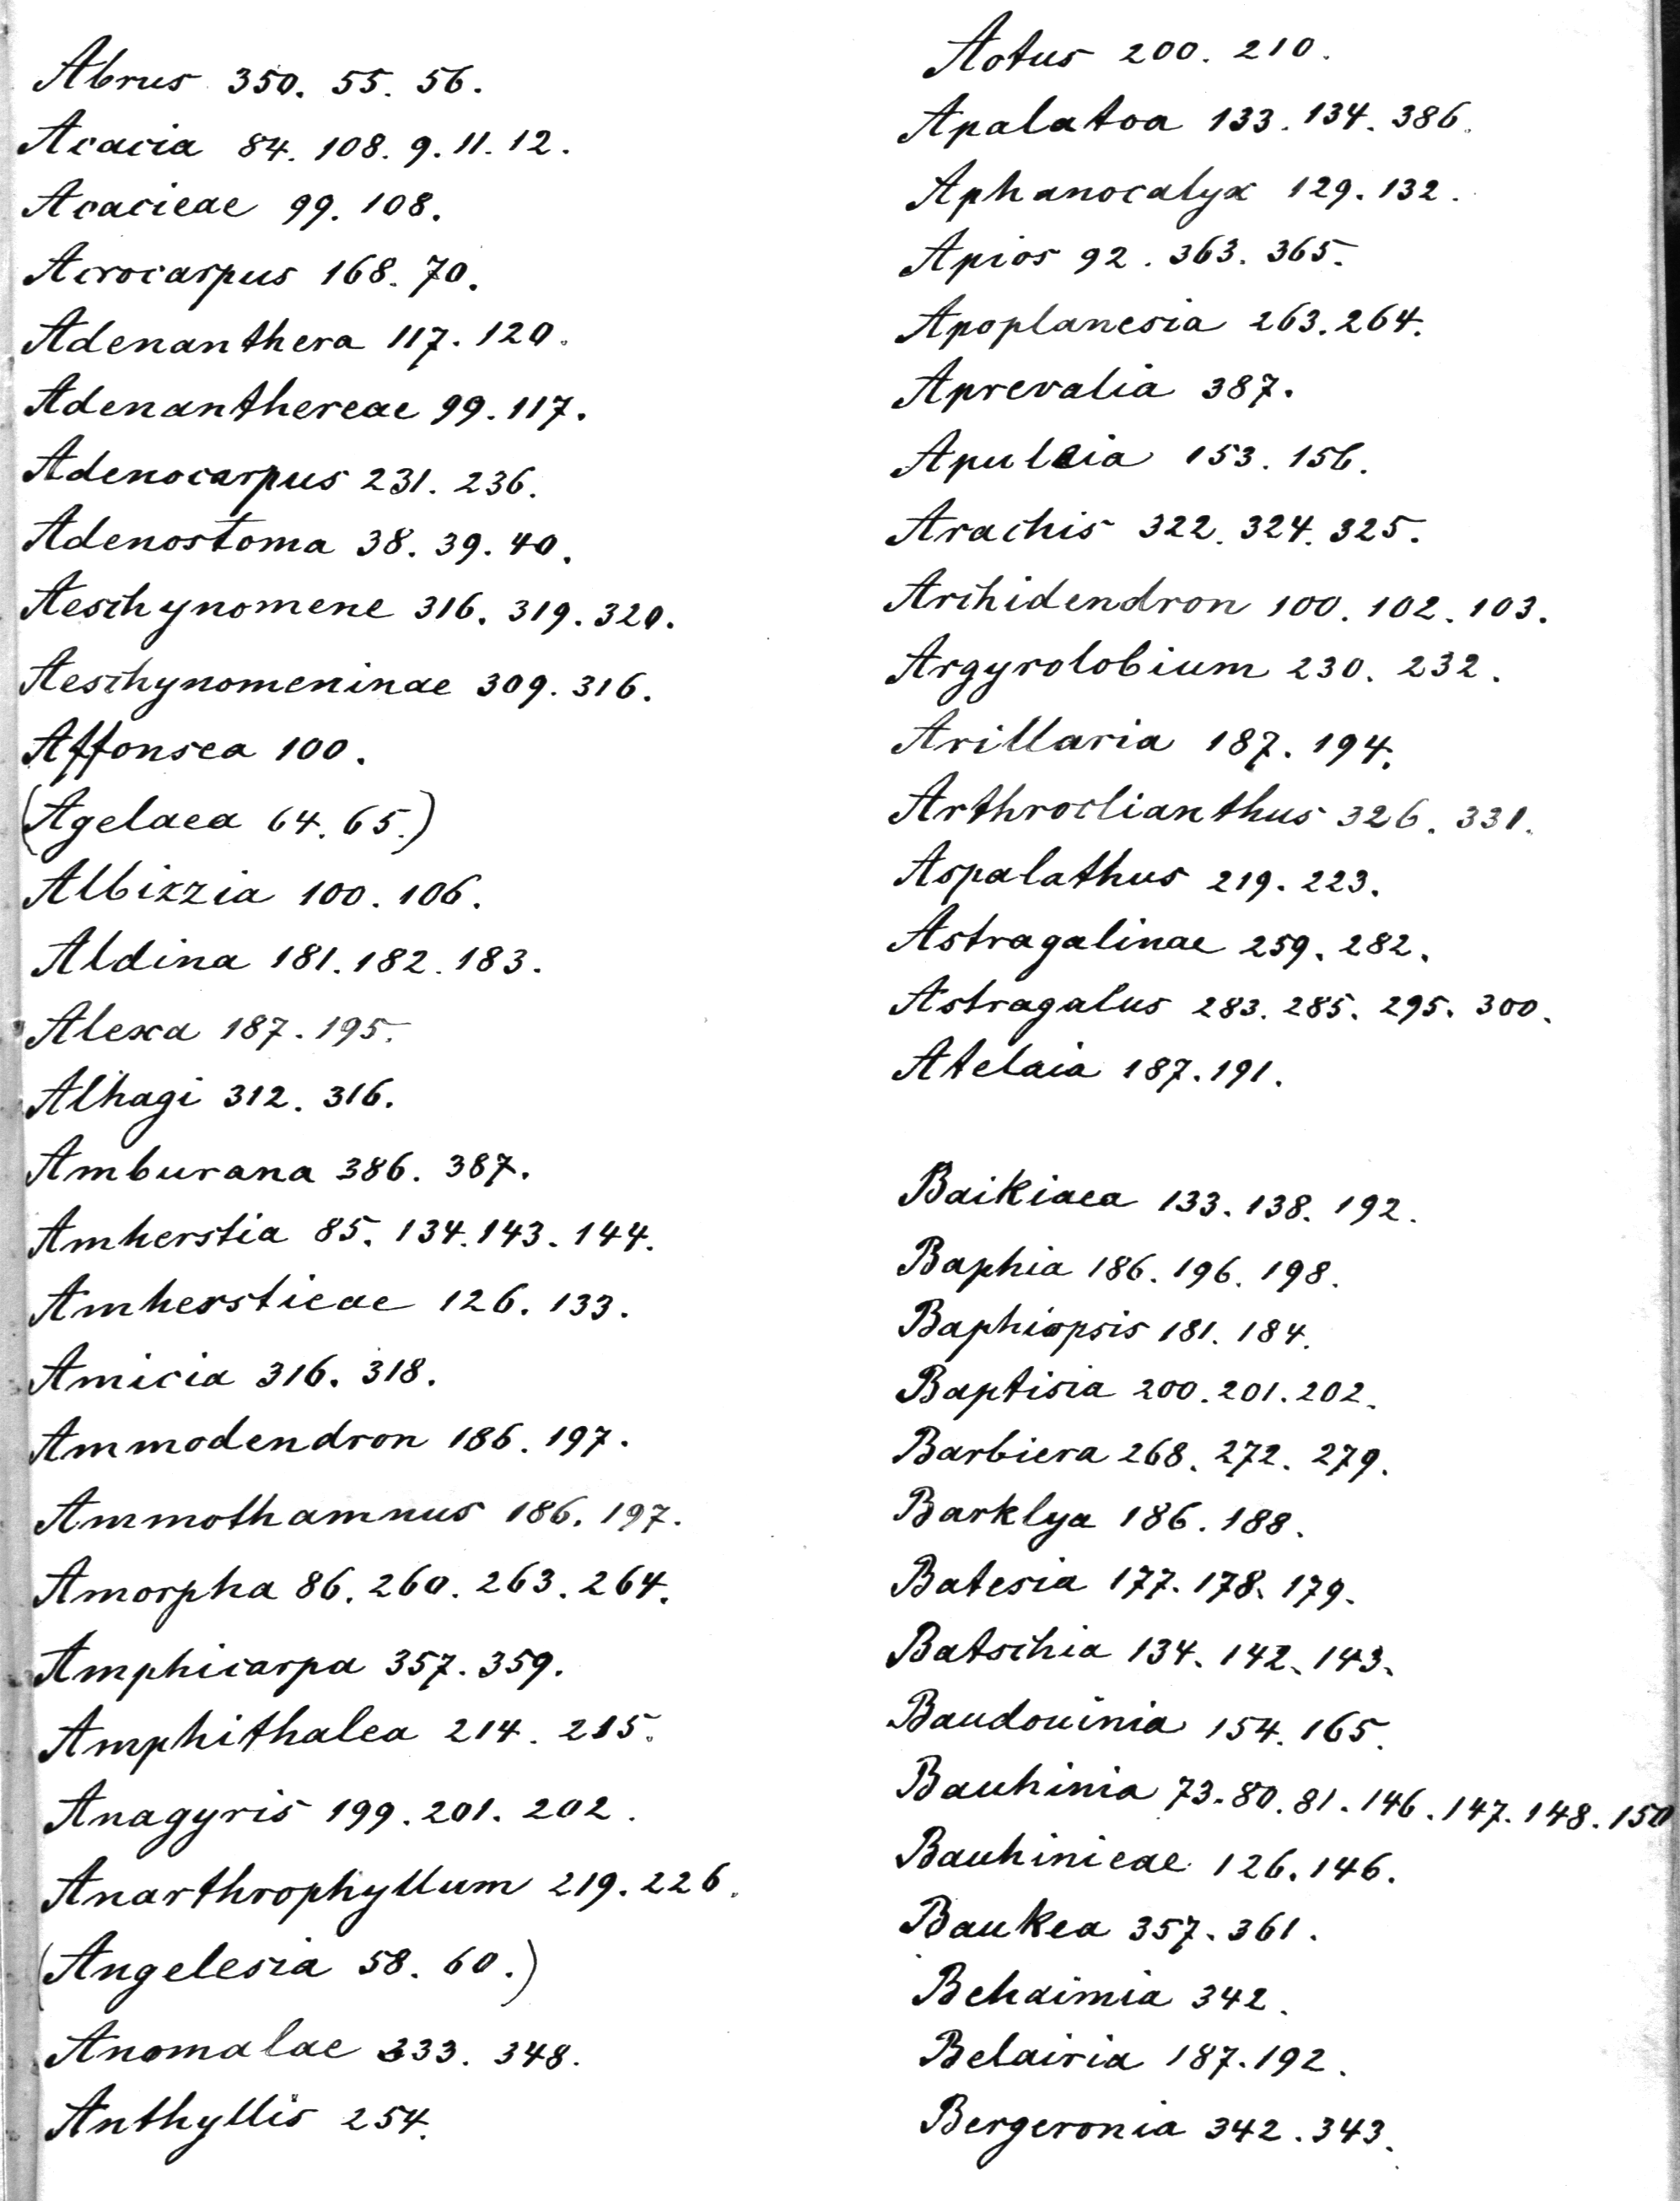 Abrus 350. 55. 56.
Acacia 84. 108. 9. 11. 12.
Acacieae 99. 108.
Acrocarpus 168. 70.
Adenanthera 117. 120.
Adenanthereae 99. 117.
Adenocarpus 231. 236.
Adenostoma 38. 39. 40.
Aeschynomene 316. 319. 320.
Aeschynomeninae 309. 316.
Affonsea 100.
(Agelaea 64. 65.)
Albizzia 100. 106.
Aldina 181. 182. 183.
Alexa 187. 195.
Alhagi 312. 316.
Amburana 386. 387.
Amherstia 85. 134. 143. 144.
Amherstieae 126. 133.
Amicia 316. 318.
Ammodendron 186. 197.
Ammothamnus 186. 197.
Amorpha 86. 260. 263. 264.
Amphicarpa 357. 359.
Amphithalea 214. 215.
Anagyris 199. 201. 202.
Anarthrophyllum 219. 226.
(Angelesia 58. 60.)
Anomalae 333. 348.
Anthyllis 254.
Aotus 200. 210.
Apalatoa 133. 134. 386.
Aphanocalyx 129. 132.
Apios 92. 363. 365.
Apoplanesia 263. 264.
Aprevalia 387.
Apuleia 153. 156.
Arachis 322. 324. 325.
Archidendron 100. 102. 103.
Argyrolobium 230. 232.
Arillaria 187. 194.
Arthroclianthus 326. 331.
Aspalathus 219. 223.
Astragalinae 259. 282.
Astragalus 283. 285. 295. 300.
Atelaia 187. 191.
Baikiaea 133. 138. 192.
Baphia 186. 196. 198.
Baphiopsis 181. 184.
Baptisia 200. 201. 202.
Barbiera 268. 272. 279.
Barklya 186. 188.
Batesia 177. 178. 179.
Batschia 134. 142. 143.
Baudouinia 154. 165.
Bauhinia 73. 80. 81. 146. 147. 148. 150
Bauhinieae 126. 146.
Baukea 357. 361.
Behaimia 342.
Belairia 187. 192.
Bergeronia 342. 343.